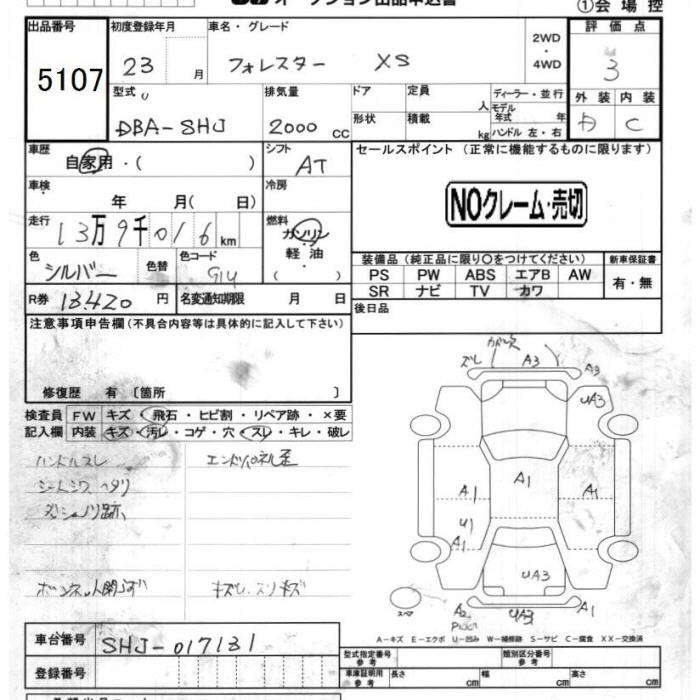 オークション出品申込書
①会場控
出品番号 5107
初度登録年月 23 月
車名・グレード フォレスター XS
2WD・4WD
評価点 3
型式 DBA-SHJ
排気量 2000 cc
ドア
形状
定員 人
積載 kg
ディーラー・並行
モデル年式 年
ハンドル 左・右
外装 内装 C
車歴 自家用・( )
シフト AT
セールスポイント (正常に機能するものに限ります)
NOクレーム・売切
車検 年 月( 日)
冷房
走行 13万9千016km
燃料 ガソリン・軽油 ( )
色 シルバー 色替
色コード G1U
装備品 (純正品に限り〇をつけてください)
新車保証書
PS PW ABS エアB AW
SR ナビ TV カワ
有・無
R券 13420円
名変通知期限 月 日
後日品
注意事項申告欄 (不具合内容等は具体的に記入して下さい)
修復歴 有 〔箇所 〕
検査員記入欄
FW キズ・飛石・ヒビ割・リペア跡・×要
内装 キズ・汚レ・コゲ・穴・スレ・キレ・破レ
ハンドルスレ
シートシワ ヘタリ
ズレ
A3
A3
UA3
A1
A1
A1
U1
A1
UA3
A2
A1
スペア
A-キズ E-エクボ U-凹み W-補修跡 S-サビ C-腐食 XX-交換済
車台番号 SHJ-017131
登録番号
型式指定番号 参考
類別区分番号 参考
車庫証明用 参考
長さ cm
幅 cm
高さ cm